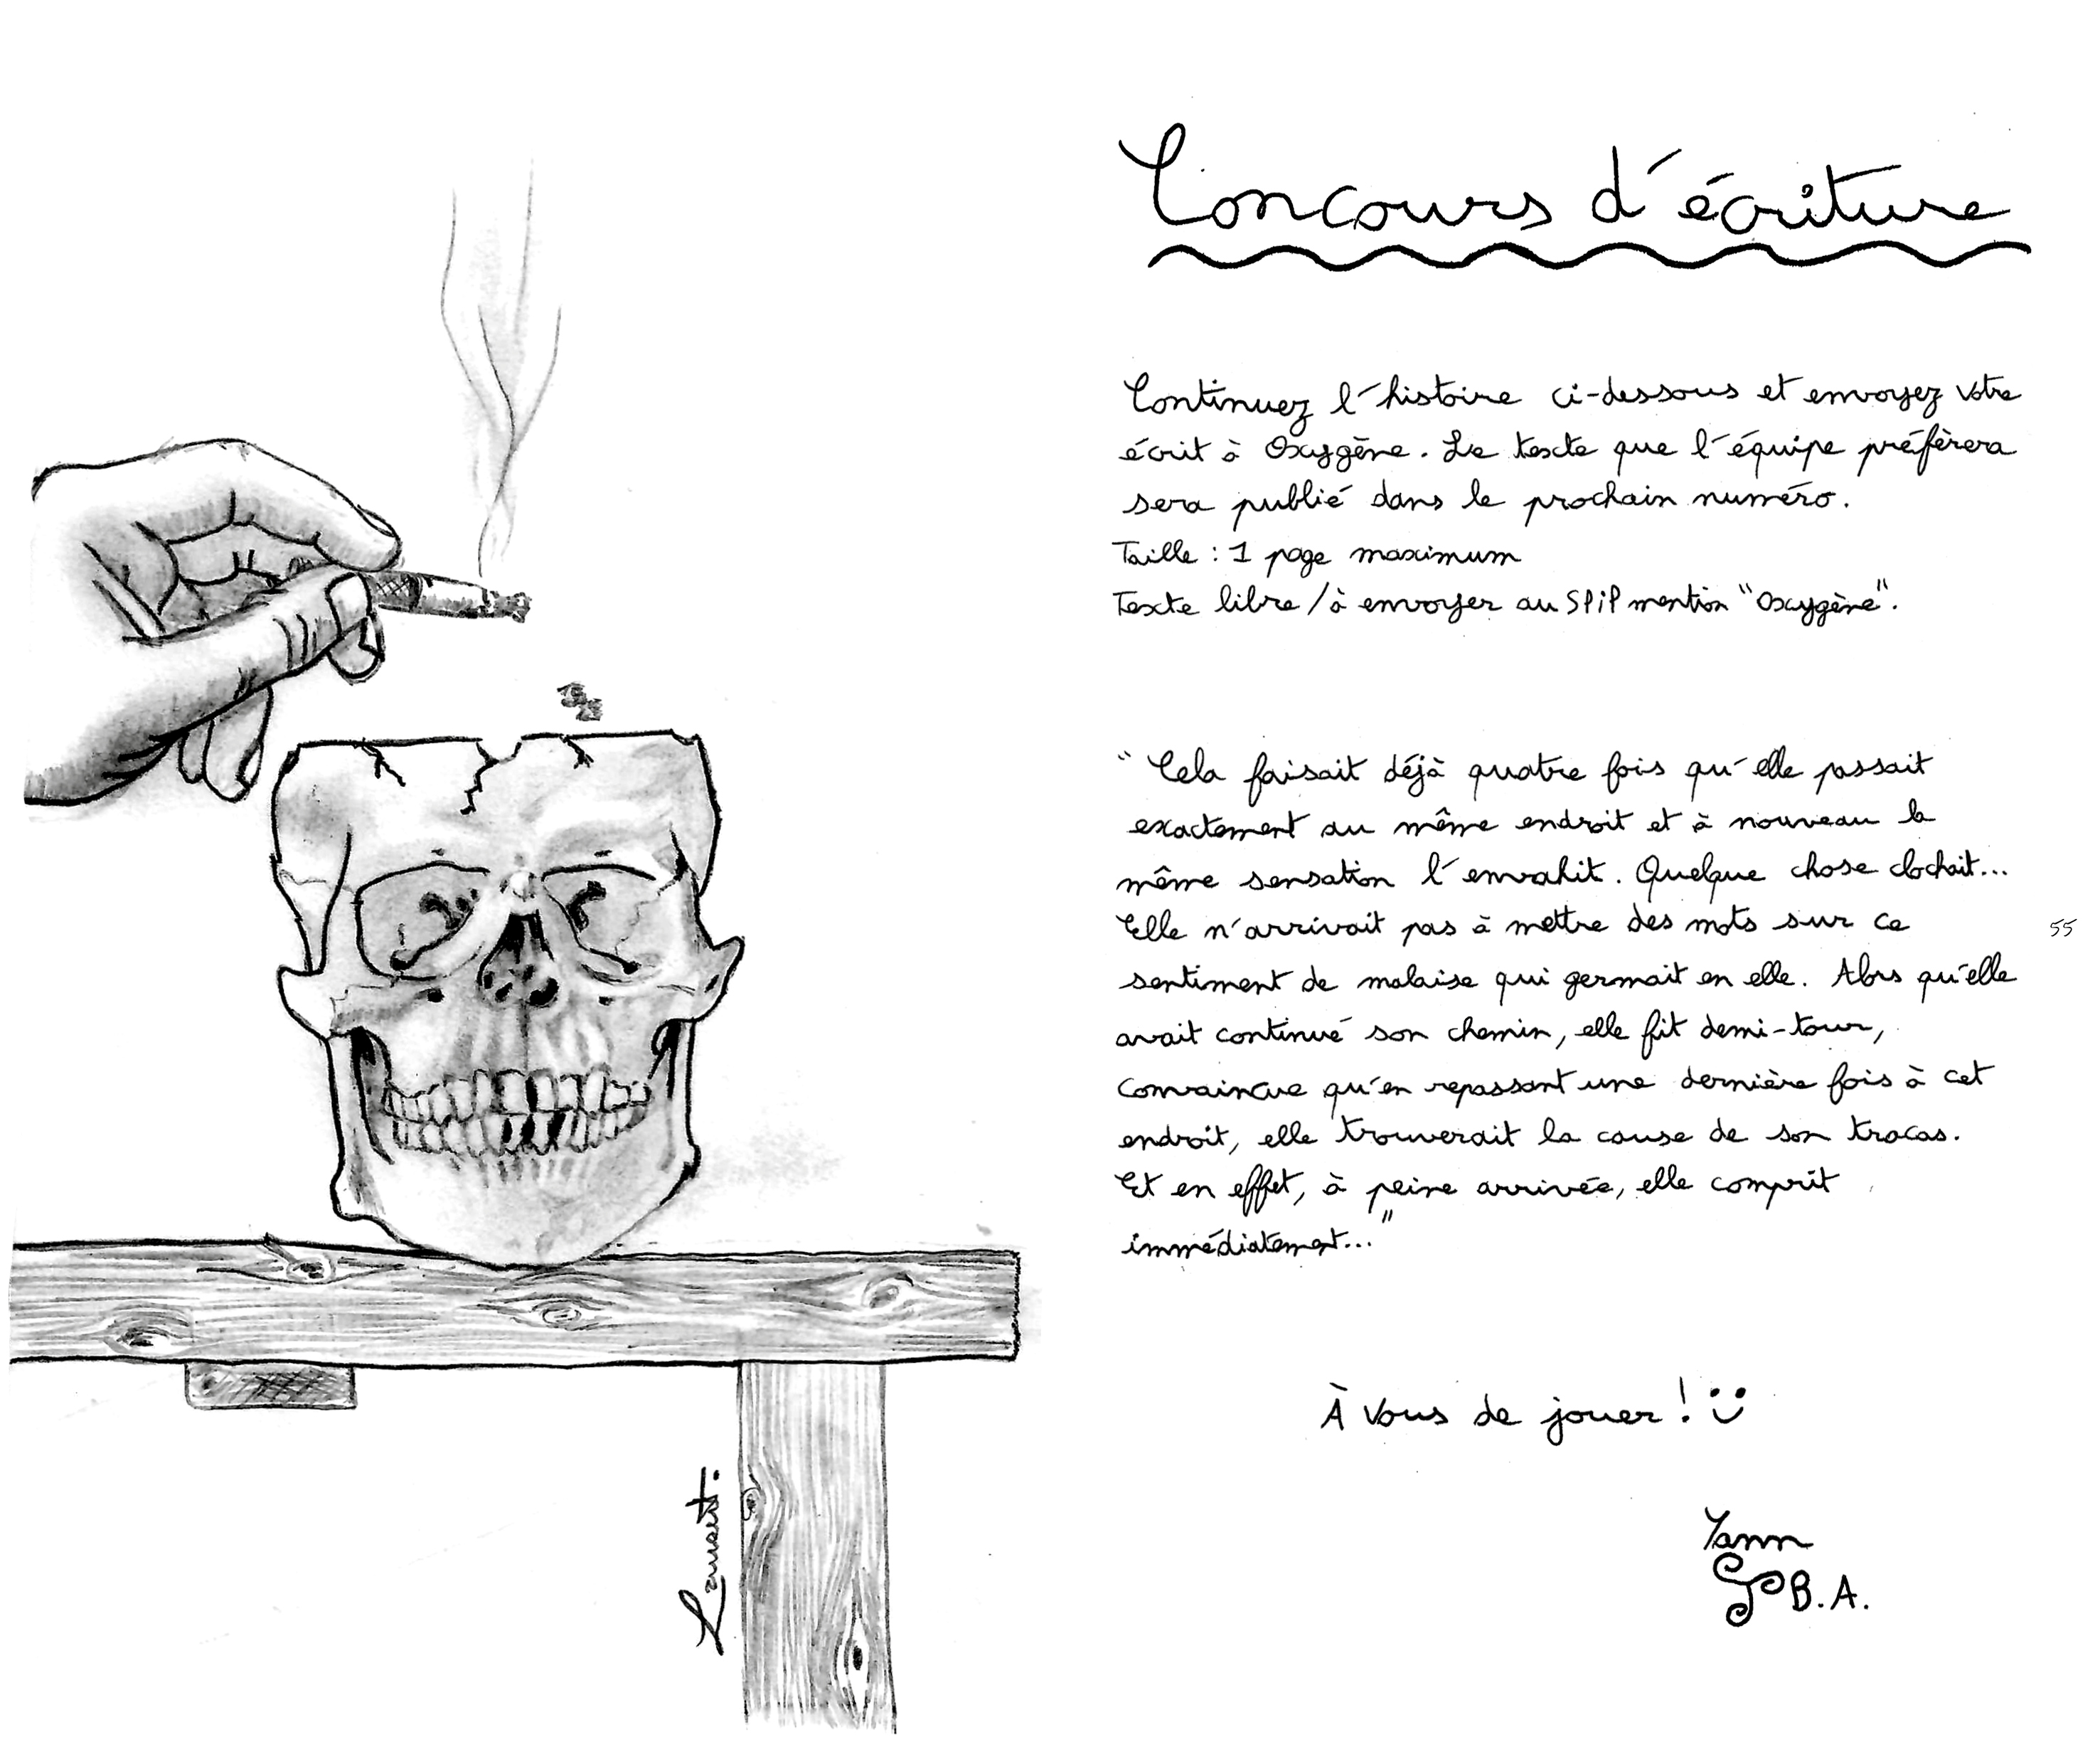 Concours d'écriture
Continuez l'histoire ci-dessous et envoyez votre
écrit à Oxygène. Le texte que l'équipe préfèrera
sera publié dans le prochain numéro.
Taille : 1 page maximum
Texte libre / à envoyer au SPiP mention "Oxygène".
"Cela faisait déjà quatre fois qu'elle passait
exactement au même endroit et à nouveau la
même sensation l'envahit. Quelque chose clochait...
Elle n'arrivait pas à mettre des mots sur ce
sentiment de malaise qui germait en elle. Alors qu'elle
avait continué son chemin, elle fit demi-tour,
convaincue qu'en repassant une dernière fois à cet
endroit, elle trouverait la cause de son tracas.
Et en effet, à peine arrivée, elle comprit
immédiatement..."
À vous de jouer ! :)
Yann
B.A.
55